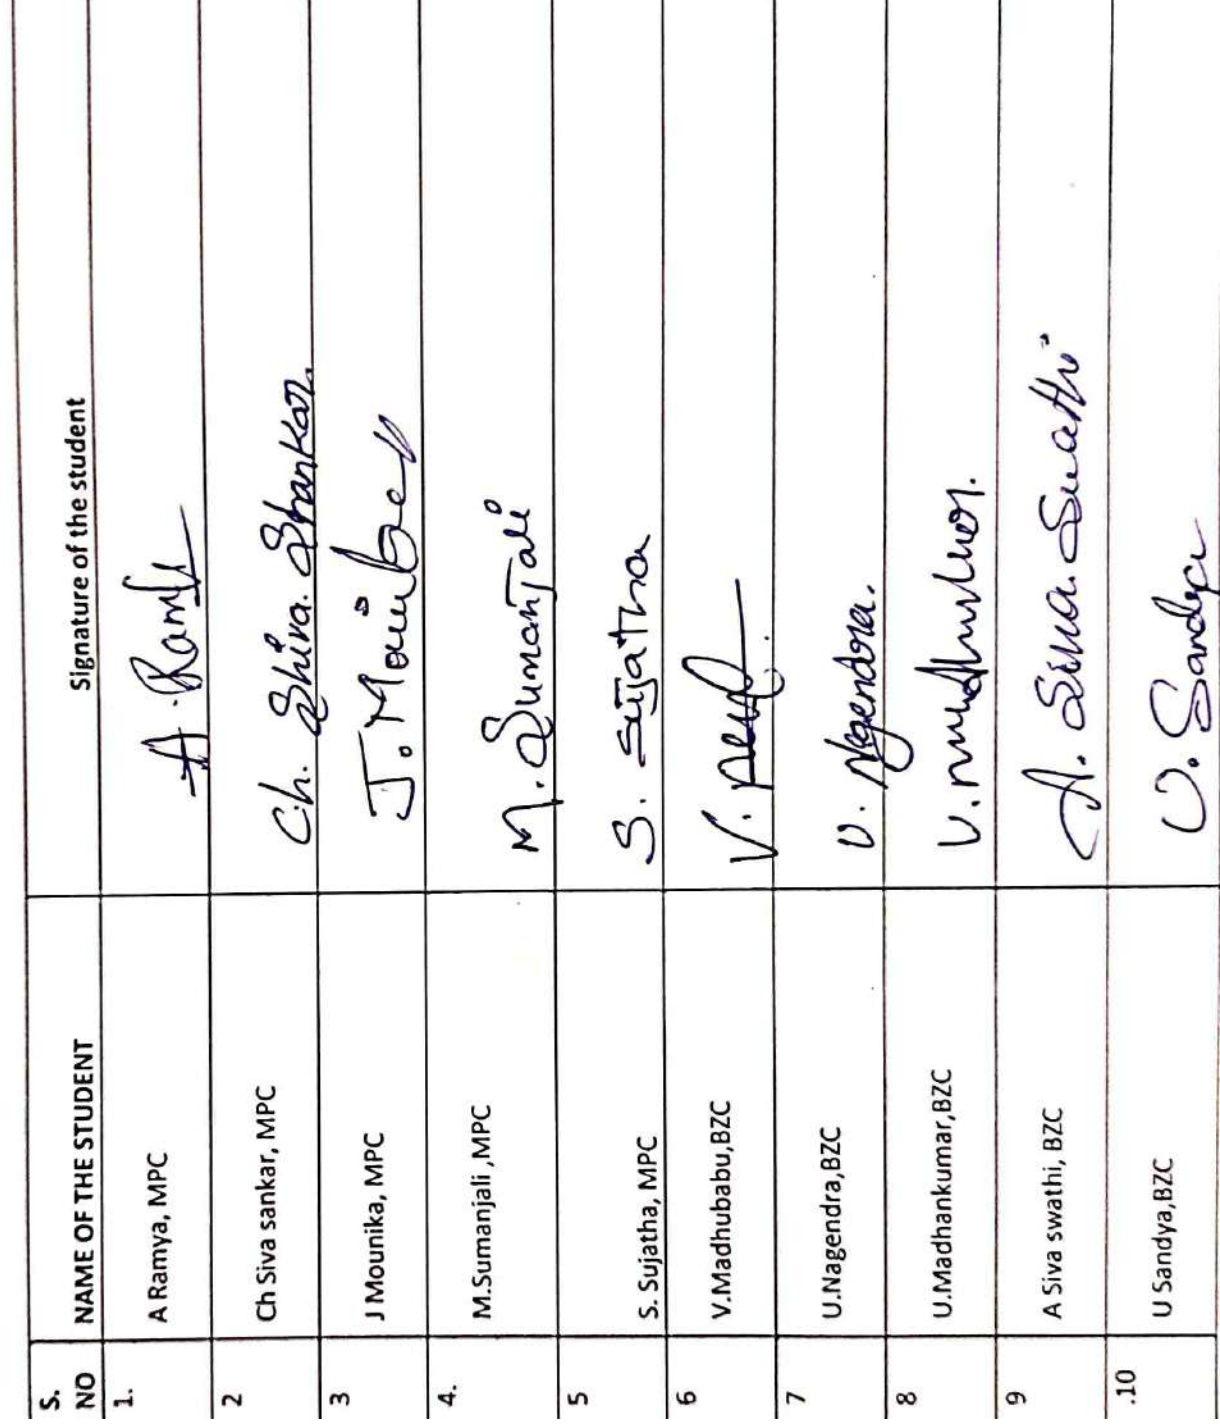 S. NO NAME OF THE STUDENT Signature of the student
1. A Ramya, MPC A. Ramya
2 Ch Siva sankar, MPC Ch. Shiva. Shankar.
3 J Mounika, MPC J. Mounika
4. M.Sumanjali ,MPC M. Sumanjali
5 S. Sujatha, MPC S. Sujatha
6 V.Madhubabu,BZC V.
7 U.Nagendra,BZC U. Nagendra.
8 U.Madhankumar,BZC U.
9 A Siva swathi, BZC A. Siva. Swathi
.10 U Sandya,BZC U. Sandya